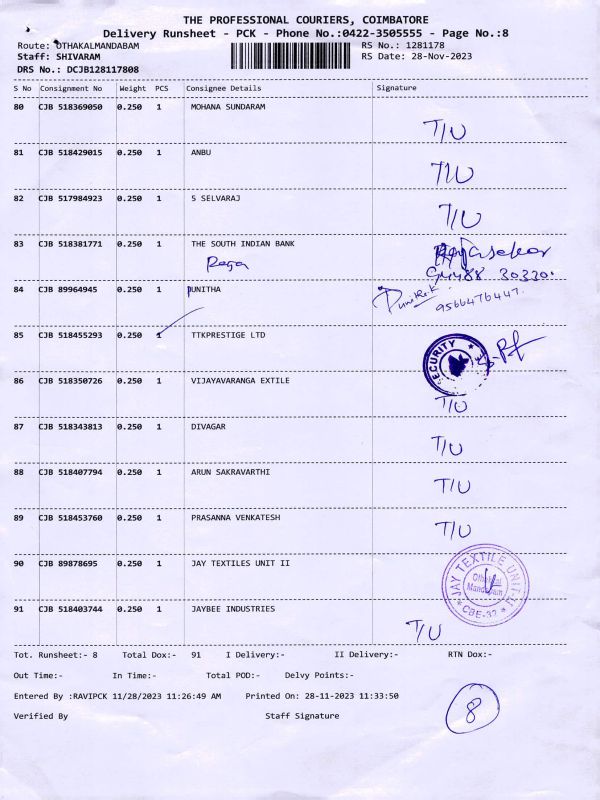 THE PROFESSIONAL COURIERS, COIMBATORE
Delivery Runsheet - PCK - Phone No.:0422-3505555 - Page No.:8
Route: OTHAKALMANDABAM RS No.: 1281178
Staff: SHIVARAM RS Date: 28-Nov-2023
DRS No.: DCJB128117808
S No Consignment No Weight PCS Consignee Details Signature
80 CJB 518369050 0.250 1 MOHANA SUNDARAM
T/U
81 CJB 518429015 0.250 1 ANBU
T/U
82 CJB 517984923 0.250 1 S SELVARAJ
T/U
83 CJB 518381771 0.250 1 THE SOUTH INDIAN BANK
Raja
84 CJB 89964945 0.250 1 PUNITHA
Punitha.K
9566476447.
85 CJB 518455293 0.250 1 TTKPRESTIGE LTD
SECURITY
86 CJB 518350726 0.250 1 VIJAYAVARANGA EXTILE
T/U
87 CJB 518343813 0.250 1 DIVAGAR
T/U
88 CJB 518407794 0.250 1 ARUN SAKRAVARTHI
T/U
89 CJB 518453760 0.250 1 PRASANNA VENKATESH
T/U
90 CJB 89878695 0.250 1 JAY TEXTILES UNIT II
JAY TEXTILE UNIT-II
Othakal
Mandapam
* CBE-32 *
91 CJB 518403744 0.250 1 JAYBEE INDUSTRIES
T/U
Tot. Runsheet:- 8 Total Dox:- 91 I Delivery:- II Delivery:- RTN Dox:-
Out Time:- In Time:- Total POD:- Delvy Points:-
Entered By :RAVIPCK 11/28/2023 11:26:49 AM Printed On: 28-11-2023 11:33:50
Verified By Staff Signature
8